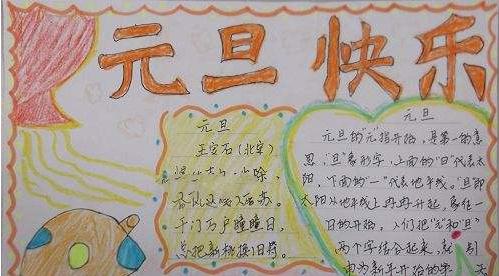 元旦快乐
元旦
王安石(北宋)
除,
春风送暖入
千门万户瞳瞳日,
总把新桃换旧符。
元旦
元旦的"元"指开始,是第一的意
思,"旦"象形字,上面的"日"代表太
阳,下面的"一"代表地平线。"旦"即
太阳从地平线上冉冉升起,象征一
日的开始。人们把"元"和"旦"
两个字结合起来,就引
申为新年开始的第一天